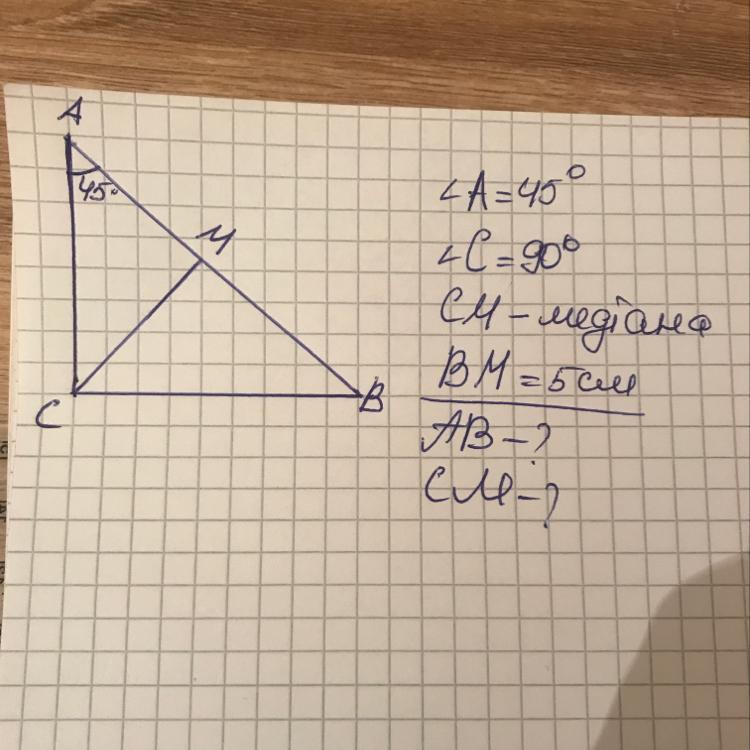 A
45°
M
C
B
∠A=45°
∠C=90°
CM – медіана
BM=5см
AB–?
CM–?